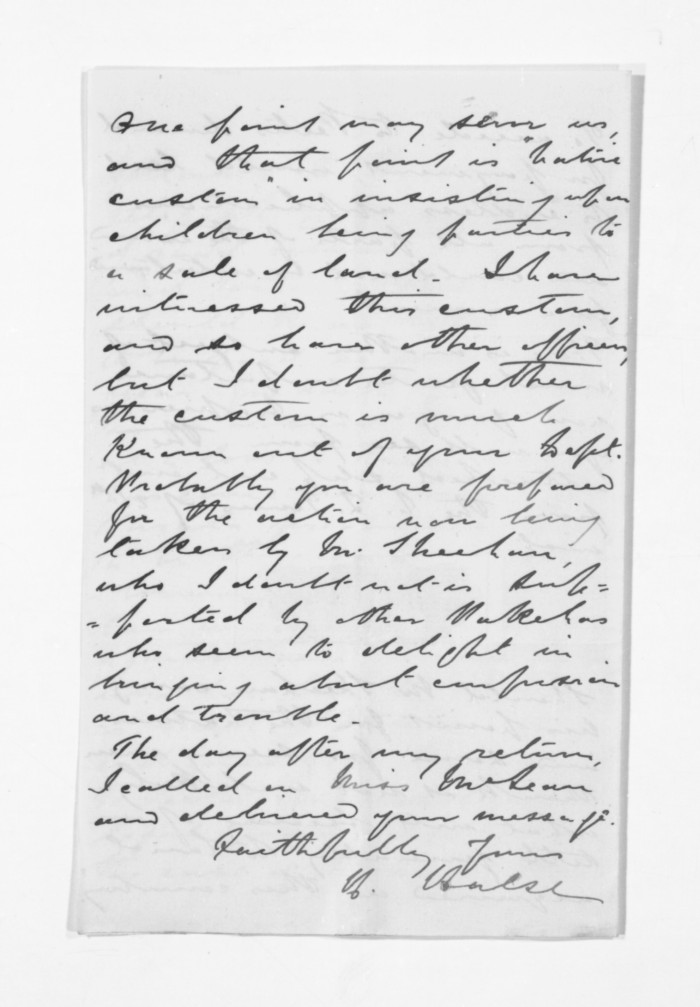 One point may serve us,
and that point is "native
custom" in insisting upon
children being parties to
a sale of land. I have
witnessed this custom,
and so have other officers,
but I doubt whether
the custom is much
known out of your Dept.
Probably you are prepared
for the action now being
taken by Mr. Sheehan,
who I doubt not is sup=
=ported by other Pakehas
who seem to delight in
bringing about confusion
and trouble.
The day after my return,
I called on Miss McLean
and delivered your message.
Faithfully Yours
H. Halse